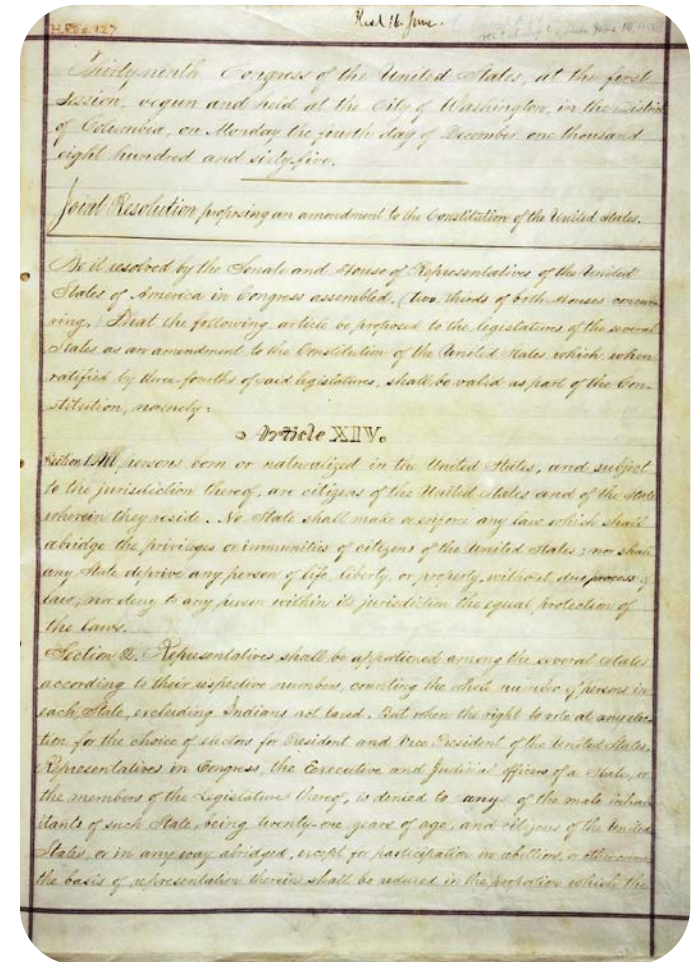 H.Res. 127
Recd 16 June.
Thirty-ninth Congress of the United States, at the first
Session, begun and held at the City of Washington, in the District
of Columbia, on Monday the fourth day of December one thousand
eight hundred and sixty-five.
Joint Resolution proposing an amendment to the Constitution of the United States.
Be it resolved by the Senate and House of Representatives of the United
States of America in Congress assembled, (two thirds of both Houses concur-
ring,) That the following article be proposed to the legislatures of the several
States as an amendment to the Constitution of the United States, which, when
ratified by three-fourths of said legislatures, shall be valid as part of the Con-
stitution, namely:
Article XIV.
Section 1. All persons born or naturalized in the United States, and subject
to the jurisdiction thereof, are citizens of the United States and of the State
wherein they reside. No State shall make or enforce any law which shall
abridge the privileges or immunities of citizens of the United States; nor shall
any State deprive any person of life, liberty, or property, without due process of
law; nor deny to any person within its jurisdiction the equal protection of
the laws.
Section 2. Representatives shall be apportioned among the several States
according to their respective numbers, counting the whole number of persons in
each State, excluding Indians not taxed. But when the right to vote at any elec-
tion for the choice of electors for President and Vice President of the United States,
Representatives in Congress, the Executive and Judicial officers of a State, or
the members of the Legislature thereof, is denied to any of the male inhab-
itants of such State, being twenty-one years of age, and citizens of the United
States, or in any way abridged, except for participation in rebellion, or other crime,
the basis of representation therein shall be reduced in the proportion which the